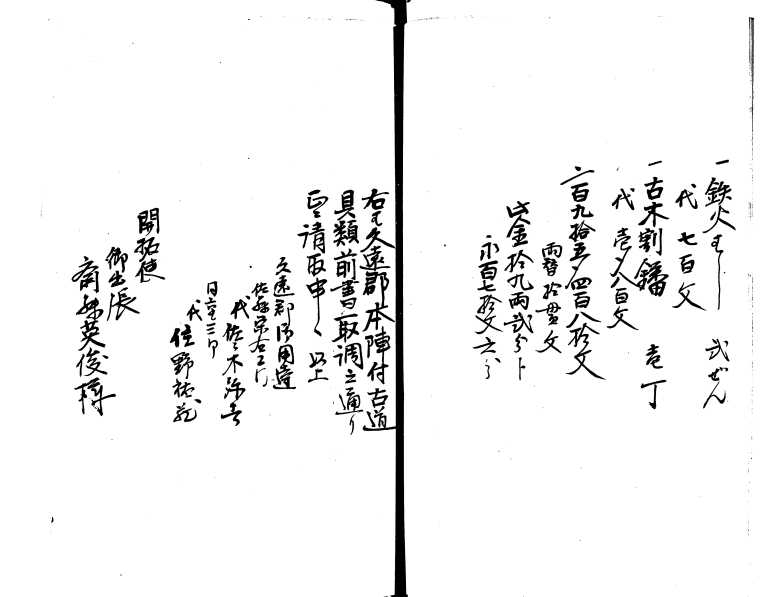 一鉄火はし　弐ぜん
代七百文
一古木割鐇　壱丁
代壱〆八百文
〆百九拾五〆四百八拾文
両替拾貫文
此金拾九両弐分ト
永百七拾文六分
右は久遠郡本陣付古道
具類前書取調之通り
正ニ請取申候以上
久遠郡御用達
佐藤栄右エ門
代佐々木弥吉
代佐野祐蔵
開拓使
御出張
斎藤英俊様